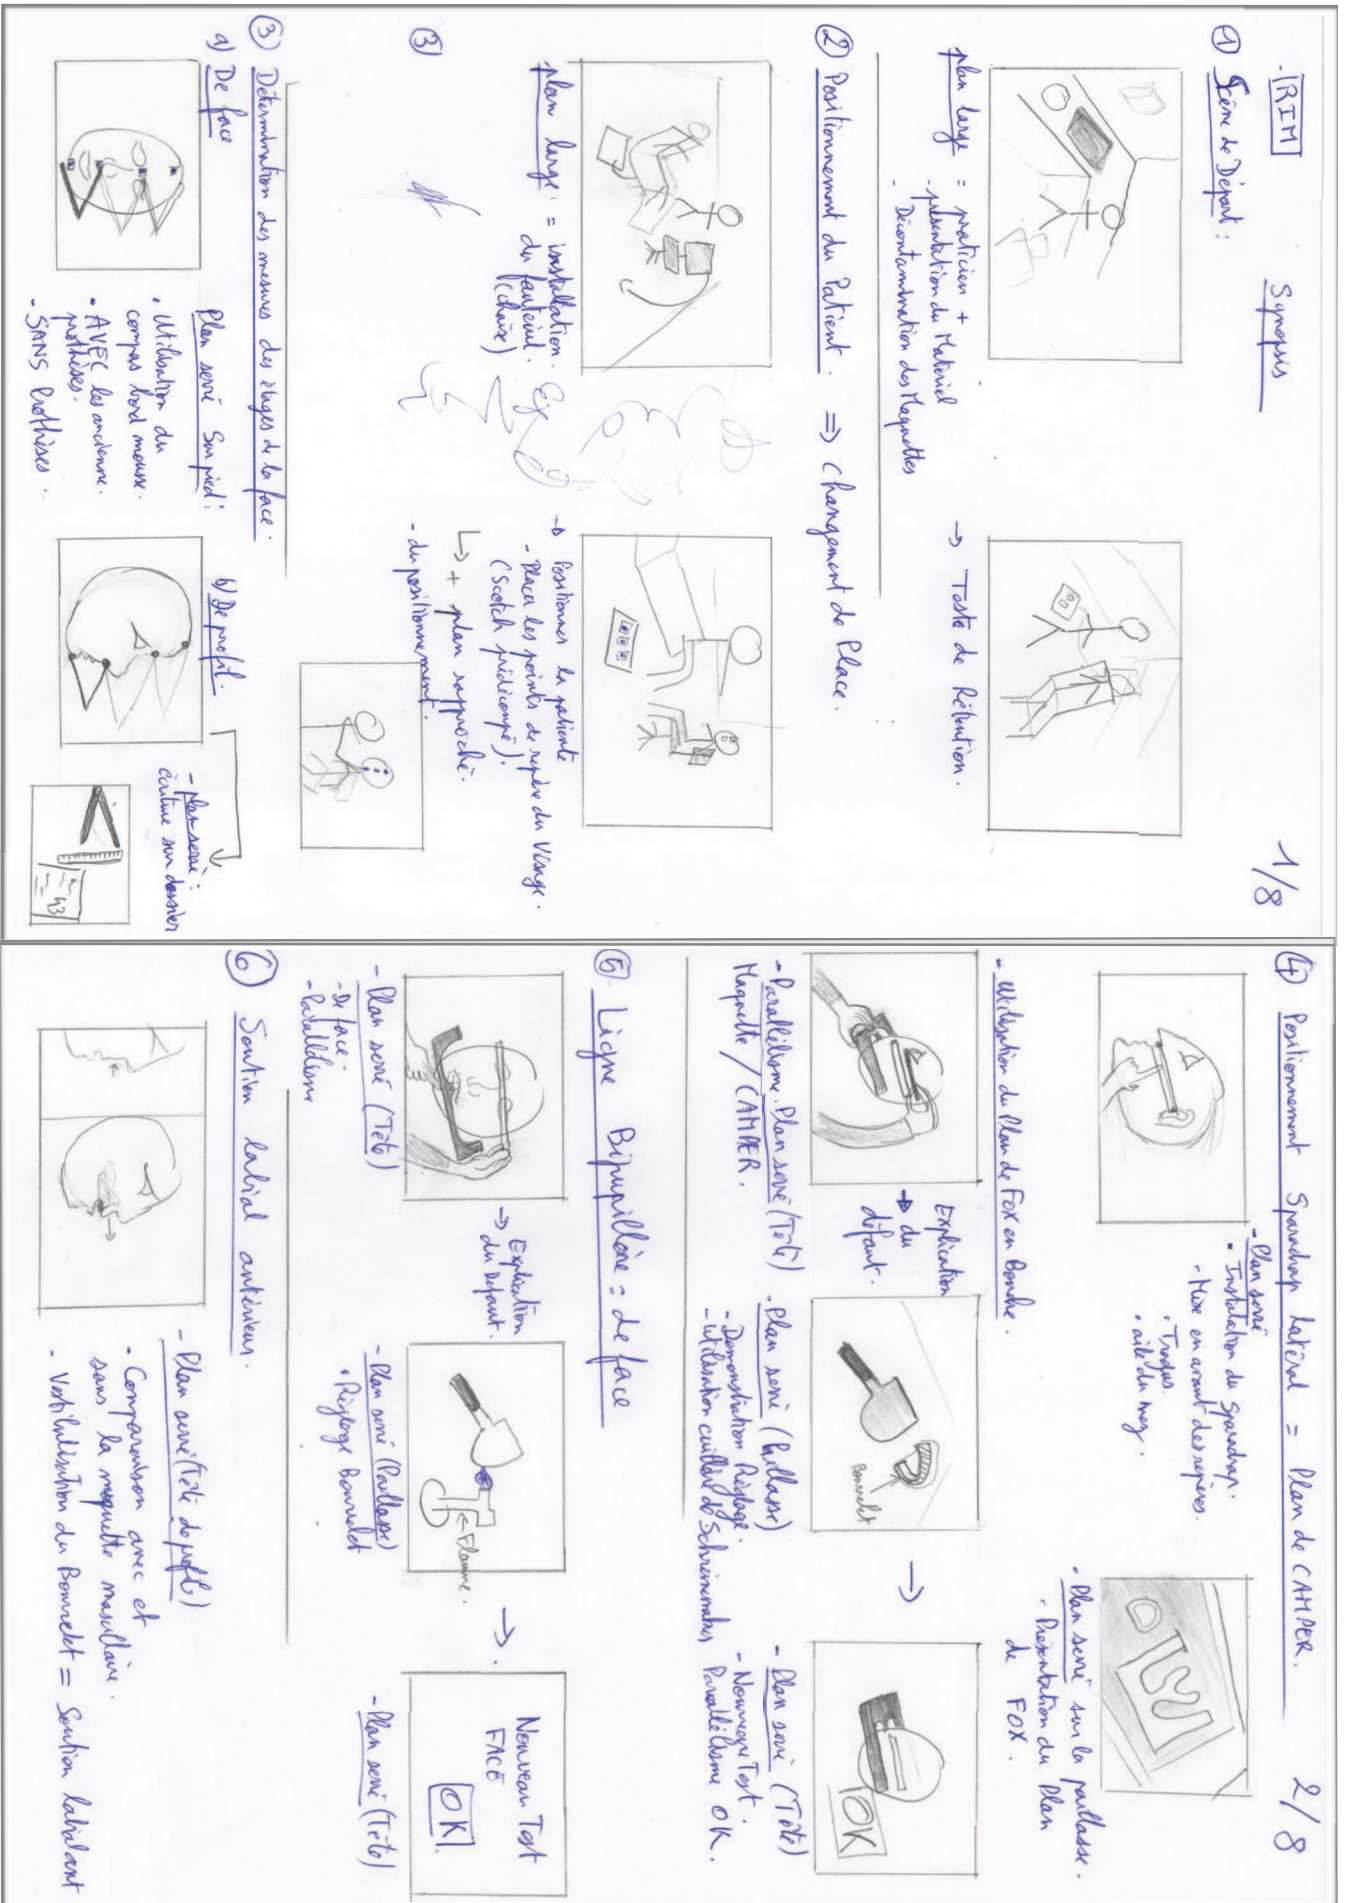 - RIM
Synopsis
1/8
① Scène de Départ :
plan large = praticien +
- présentation du Matériel
- Décontamination des Maquettes
→ Teste de Rétention.
② Positionnement du Patient. ⇒ Changement de Place.
plan large = installation
du fauteuil.
(chaise)
→ Positionner la patiente
- Placer les points de repère du Visage.
(Scotch prédécoupé).
↳ + plan rapproché.
- du positionnement.
3)
③ Détermination des mesures des étages de la face.
a) De face
Plan serré Sur pied :
• Utilisation du
compas bord mousse.
• AVEC les ancienne.
prothèses.
- SANS Prothèses.
b) De profil.
- plan serré :
écriture sur dossier
43
④ Positionnement Sparadrap latéral = Plan de CAMPER.
2/8
- Plan serré
• Installation du Sparadrap.
• Mise en avant des repères.
• Tragus.
• aile du nez.
• Plan serré sur la paillasse.
• Présentation du Plan
de FOX.
- Utilisation du Plan de Fox en Bouche.
Explication
→ du
défaut.
- Parallélisme. Plan serré (Tête)
Maquette / CAMPER.
Bourrelet
• Plan serré (Paillasse)
- Démonstration Réglage.
- Utilisation cuillère de Schreinemakers
→
OK
- Plan serré (Tête)
- Nouveau Test.
Parallélisme OK.
⑤ Ligne Bipupillaire = de face
→ Explication
du Défaut.
- Plan serré (Tête)
- De face.
- Parallélisme
Flamme.
- Plan serré (Paillasse)
• Réglage Bourrelet
→.
Nouveau Test
FACE
OK.
- Plan serré (Tête)
⑥ Soutien labial antérieur.
- Plan serré (Tête de profil)
• Comparaison avec et
sans la maquette maxillaire.